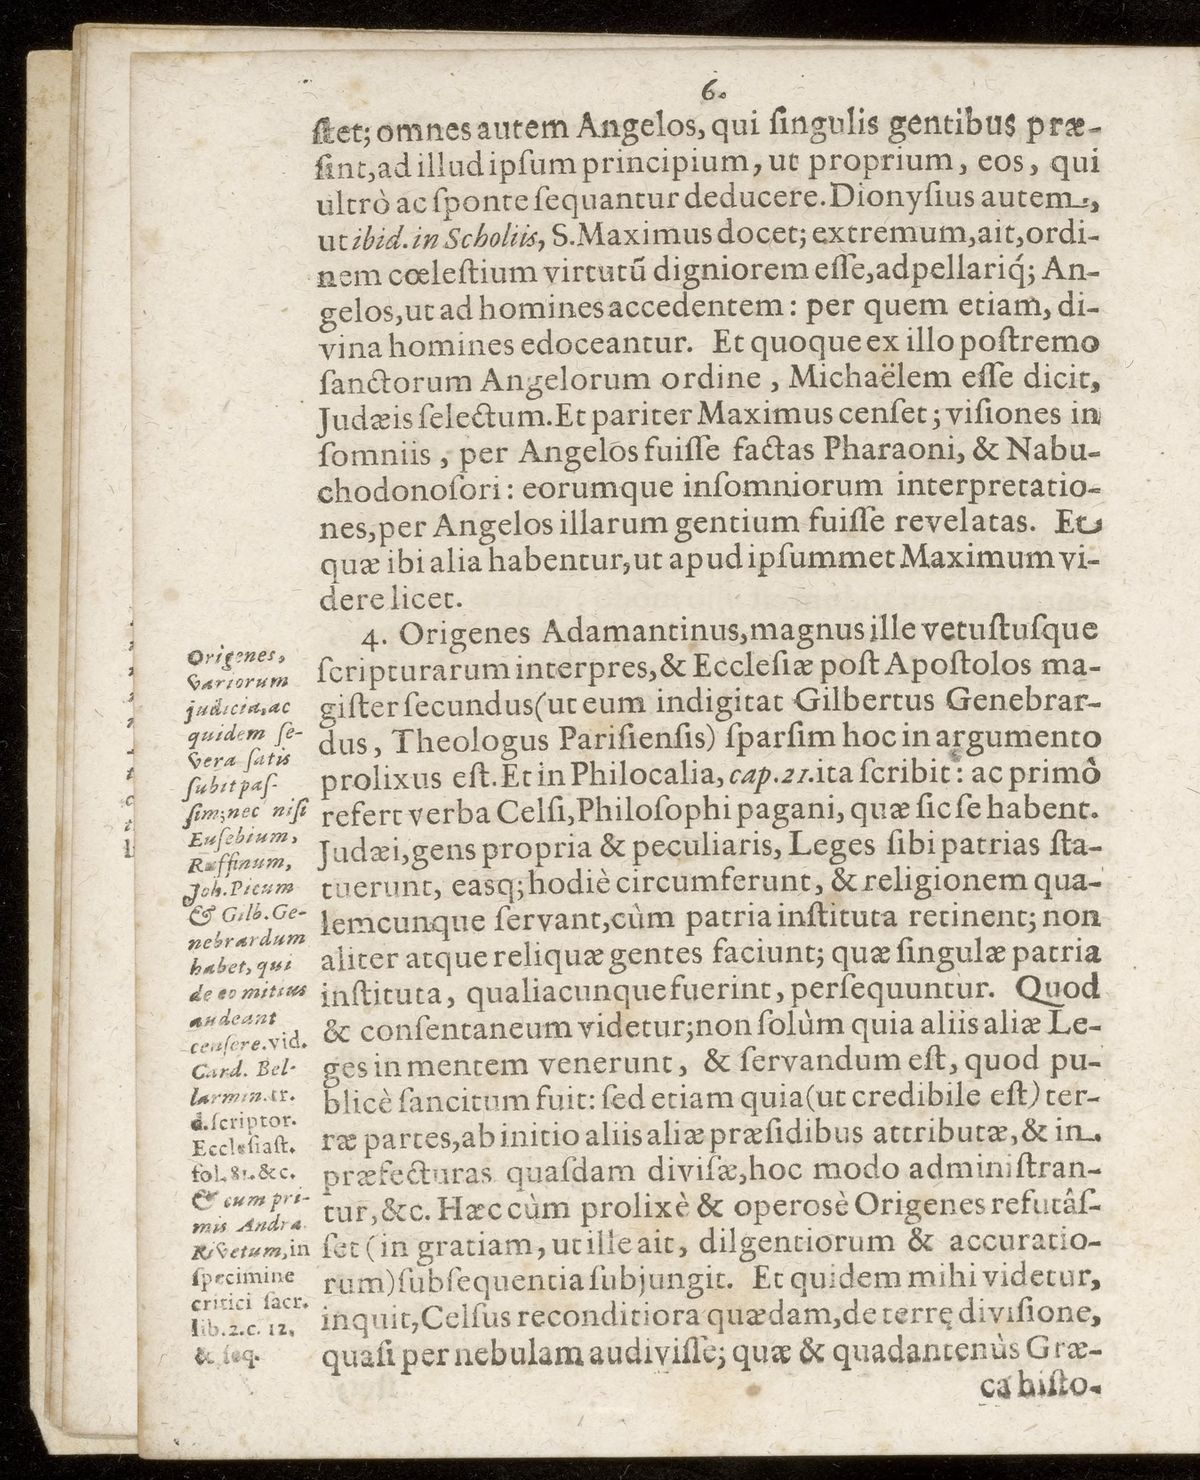 6.
ſtet; omnes autem Angelos, qui ſingulis gentibus præ-
ſint, ad illud ipſum principium, ut proprium, eos, qui
ultrò ac ſponte ſequantur deducere. Dionyſius autem,
ut ibid. in Scholiis, S. Maximus docet; extremum, ait, ordi-
nem cœleſtium virtutũ digniorem eſſe, adpellariq́; An-
gelos, ut ad homines accedentem: per quem etiam, di-
vina homines edoceantur. Et quoque ex illo poſtremo
ſanctorum Angelorum ordine, Michaëlem eſſe dicit,
Judæis ſelectum. Et pariter Maximus cenſet; viſiones in
ſomniis, per Angelos fuiſſe factas Pharaoni, & Nabu-
chodonoſori: eorumque inſomniorum interpretatio-
nes, per Angelos illarum gentium fuiſſe revelatas. Et
quæ ibi alia habentur, ut apud ipſummet Maximum vi-
dere licet.
4. Origenes Adamantinus, magnus ille vetuſtuſque
ſcripturarum interpres, & Eccleſiæ poſt Apoſtolos ma-
giſter ſecundus (ut eum indigitat Gilbertus Genebrar-
dus, Theologus Pariſienſis) ſparſim hoc in argumento
prolixus eſt. Et in Philocalia, cap. 21. ita ſcribit: ac primò
refert verba Celſi, Philoſophi pagani, quæ ſic ſe habent.
Judæi, gens propria & peculiaris, Leges ſibi patrias ſta-
tuerunt, easq; hodiè circumferunt, & religionem qua-
lemcunque ſervant, cùm patria inſtituta retinent; non
aliter atque reliquæ gentes faciunt; quæ ſingulæ patria
inſtituta, qualiacunque fuerint, perſequuntur. Quod
& conſentaneum videtur; non ſolùm quia aliis aliæ Le-
ges in mentem venerunt, & ſervandum eſt, quod pu-
blicè ſancitum fuit: ſed etiam quia (ut credibile eſt) ter-
ræ partes, ab initio aliis aliæ præſidibus attributæ, & in
præfecturas quaſdam diviſæ, hoc modo adminiſtran-
tur, &c. Hæc cùm prolixè & operosè Origenes refutâſ-
ſet (in gratiam, ut ille ait, dilgentiorum & accuratio-
rum) ſubſequentia ſubjungit. Et quidem mihi videtur,
inquit, Celſus reconditiora quædam, de terrę diviſione,
quaſi per nebulam audiviſſe; quæ & quadantenùs Græ-
ca hiſto-
Origenes,
variorum
judicia, ac
quidem ſe-
vera ſatis
ſubit paſ-
ſim; nec niſi
Euſebium,
Ruffinum,
Joh. Picum
& Gilb. Ge-
nebrardum
habet, qui
de eo mitius
audeant
cenſere. vid.
Card. Bel-
larmin. tr.
d. ſcriptor.
Eccleſiaſt.
fol. 81. &c.
& cum pri-
mis Andra.
Rivetum, in
ſpecimine
critici ſacr.
lib. 2. c. 12,
& ſeq.